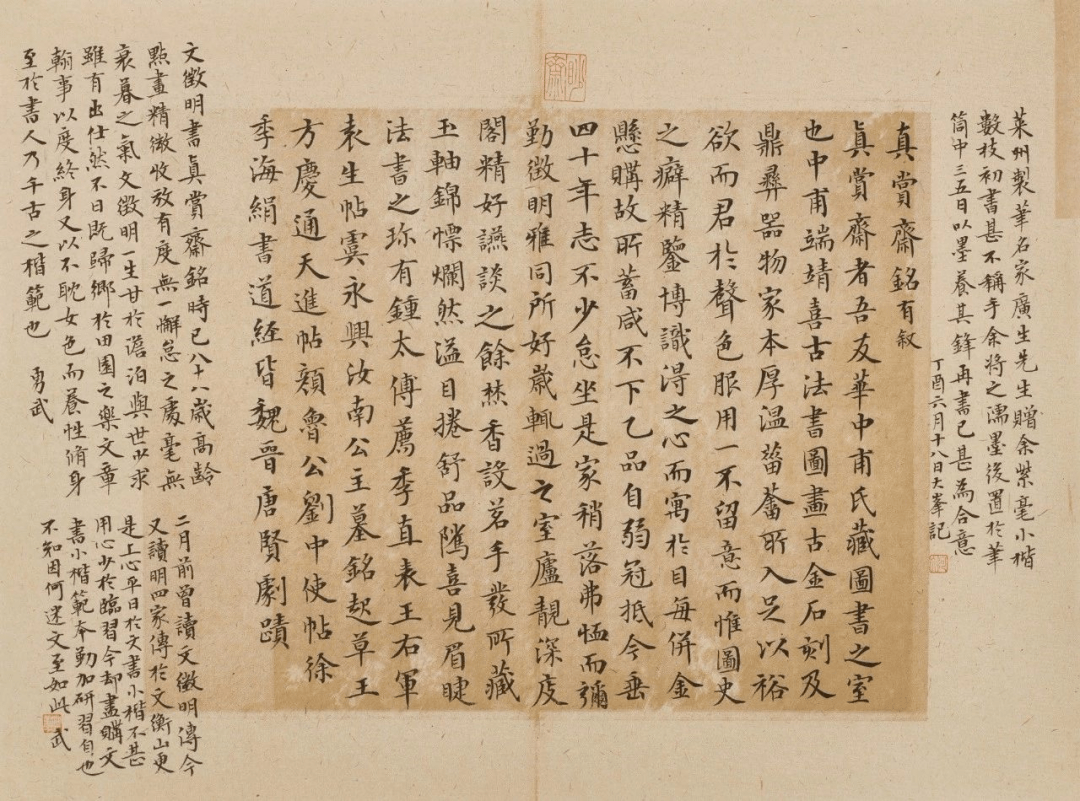 萊州製筆名家廣生先生贈余紫毫小楷
數枝初書甚不稱手余將之濡墨後置於筆
筒中三五日以墨養其鋒再書已甚為合意
丁酉六月十八日大峯記
真賞齋銘有敘
真賞齋者吾友華中甫氏藏圖書之室
也中甫端靖喜古法書圖畫古金石刻及
鼎彝器物家本厚溫菑畬所入足以裕
欲而君於聲色服用一不留意而惟圖史
之癖精鑒博識得之心而寓於目每併金
懸購故所蓄咸不下乙品自弱冠抵今垂
四十年志不少怠坐是家稍落弗恤而彌
勤徵明雅同所好歲輒過之室廬靚深庋
閣精好讌談之餘焚香設茗手發所藏
玉軸錦幖爛然溢目捲舒品隲喜見眉睫
法書之珎有鍾太傅薦季直表王右軍
袁生帖虞永興汝南公主墓銘起草王
方慶通天進帖顏魯公劉中使帖徐
季海絹書道經皆魏晉唐賢劇蹟
文徵明書真賞齋銘時已八十八歲高齡
點畫精微收放有度無一懈怠之處毫無
衰暮之氣文徵明一生甘於澹泊與世少求
雖有出仕然不日既歸鄉於田園之樂文章
翰事以度終身又以不耽女色而養性脩身
至於書人乃千古之楷範也 勇武
二月前曾讀文徵明傳今
又讀明四家傳於文衡山更
是上心平日於文書小楷不甚
用心少於臨習今却盡購文
書小楷範本勤加研習自也
不知因何迷文至如此 武